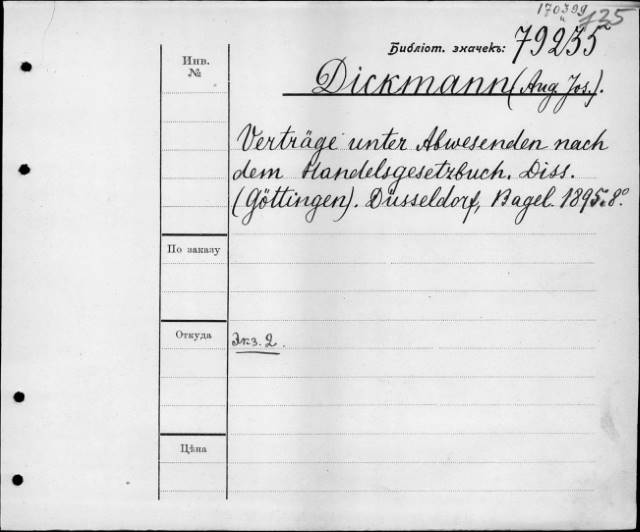 170399
и 725
Библіот. значекъ: 79235
Инв.
№
Dickmann (Aug. Jos.).
Verträge unter Abwesenden nach
dem Handelsgesetzbuch. Diss.
(Göttingen). Düsseldorf, Bagel. 1895. 8.°
По заказу
Откуда
Экз. 2.
Цѣна